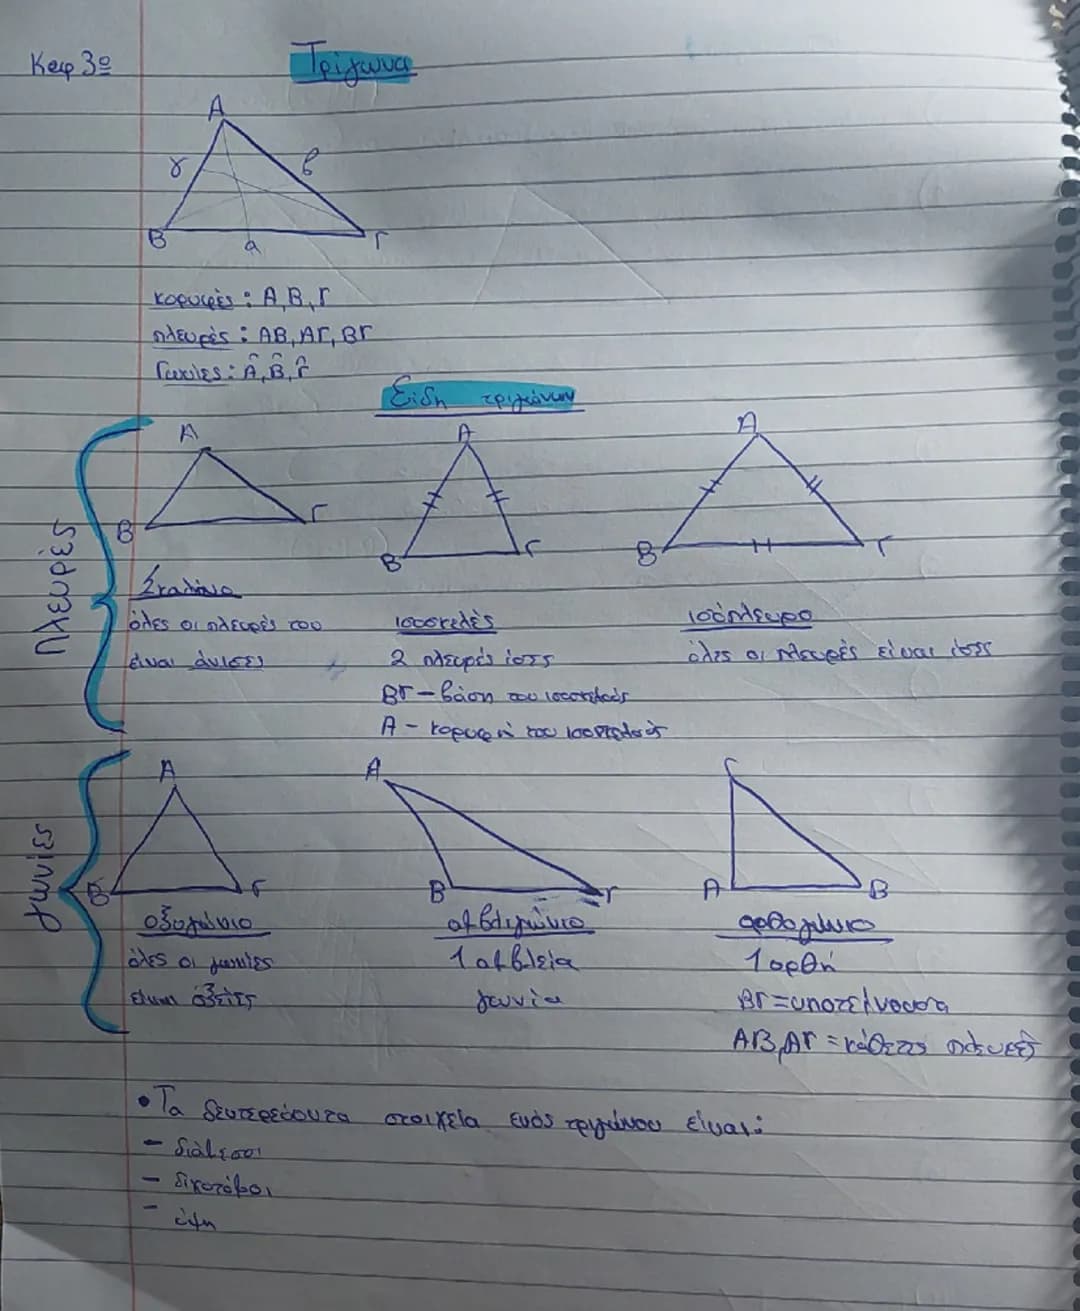 Κεφ 3º
Τρίγωνα
Α
γ
β
Β
α
Γ
κορυφές : Α, Β, Γ
πλευρές : ΑΒ, ΑΓ, ΒΓ
Γωνίες : Â, B̂, Γ̂
Είδη τριγώνων
Πλευρές
Α
Β
Γ
Α
Β
Γ
Α
Β
Γ
Σκαληνό
όλες οι πλευρές του
είναι άνισες
ισοσκελές
2 πλευρές ίσες
ΒΓ - βάση του ισοσκελούς
Α - κορυφή του ισοσκελούς
ισόπλευρο
όλες οι πλευρές είναι ίσες
γωνίες
Α
Β
Γ
Α
Β
Γ
Γ
Α
Β
οξυγώνιο
όλες οι γωνίες
είναι οξείες
αμβλυγώνιο
1 αμβλεία
γωνία
ορθογώνιο
1 ορθή
ΒΓ = υποτείνουσα
ΑΒ, ΑΓ = κάθετες πλευρές
• Τα δευτερεύοντα στοιχεία ενός τριγώνου είναι:
- διάμεσοι
- διχοτόμοι
- ύψη